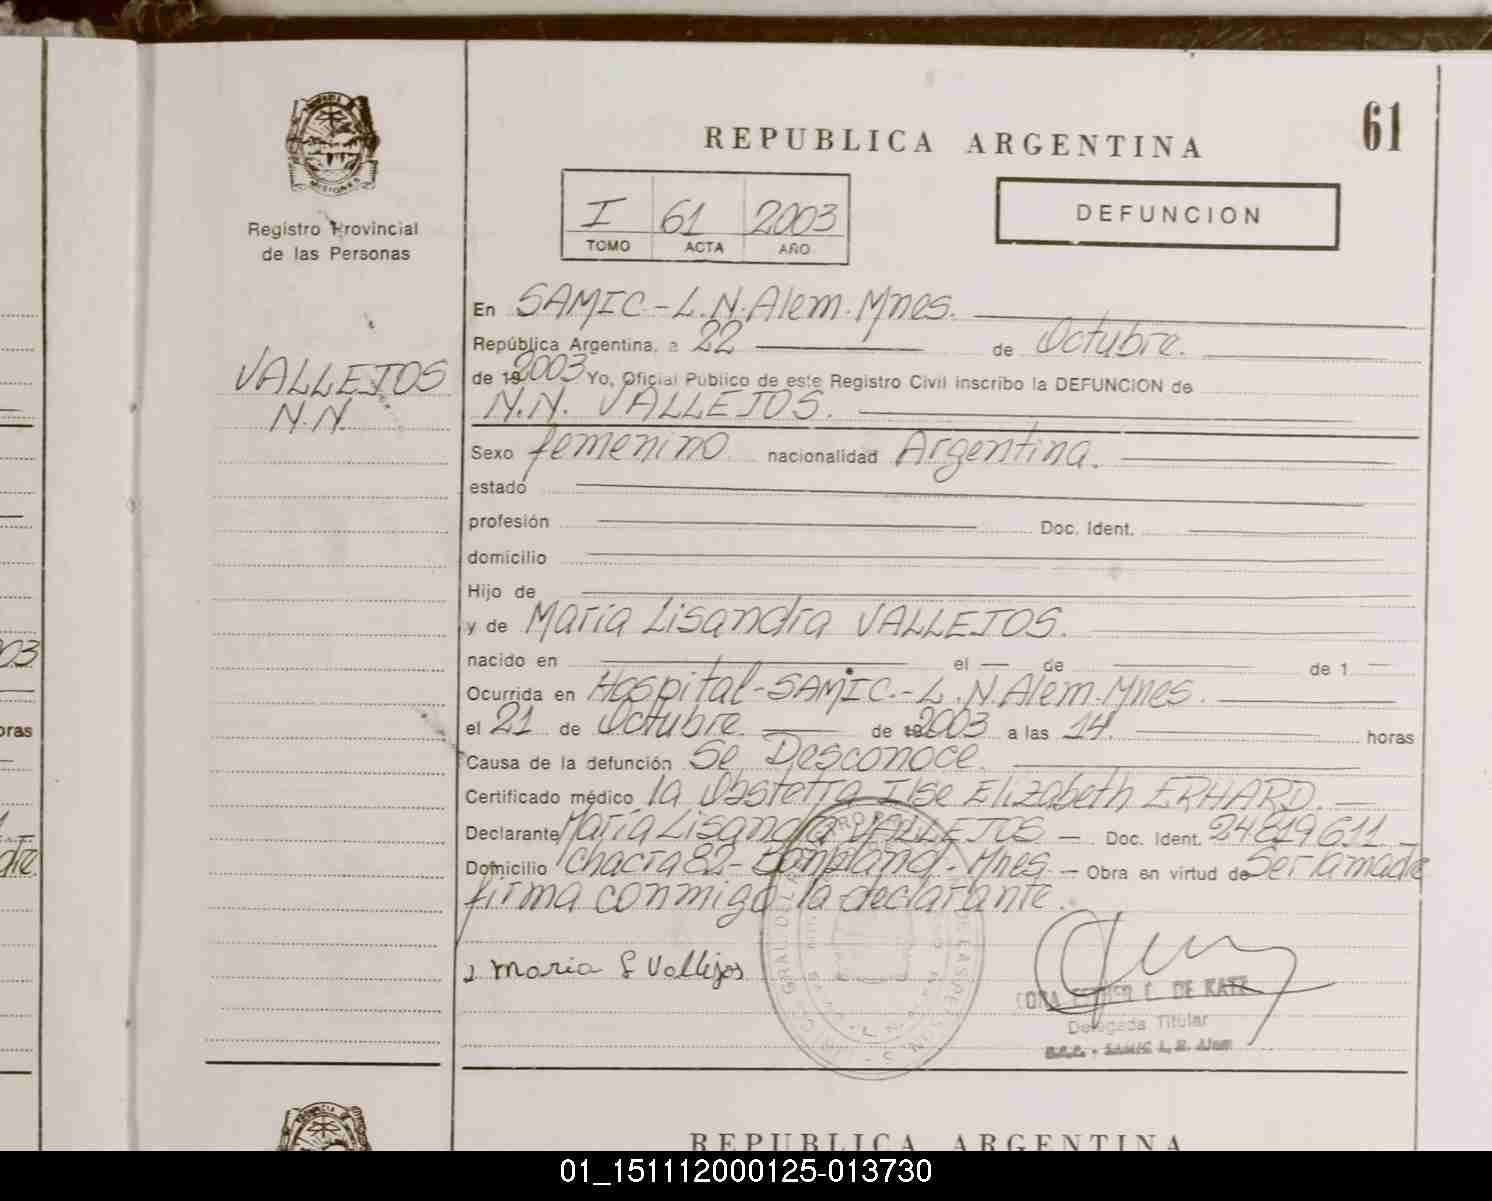 61
REPUBLICA ARGENTINA
MISIONES
Registro Provincial
de las Personas
I 61 2003
TOMO ACTA AÑO
DEFUNCION
VALLEJOS
N.N.
En SAMIC-L.N.Alem.Mnes.
República Argentina, a 22 de Octubre.
de 19 2003 Yo, Oficial Público de este Registro Civil inscribo la DEFUNCION de
N.N. VALLEJOS.
Sexo femenino nacionalidad Argentina.
estado
profesión Doc. Ident.
domicilio
Hijo de
y de Maria Lisandra VALLEJOS.
nacido en el de de 1
Ocurrida en Hospital-SAMIC.-L.N.Alem.Mnes.
el 21 de Octubre. de 19 2003 a las 14. horas
Causa de la defunción Se Desconoce.
Certificado médico la Obstetra Ilse Elizabeth ERHARD.
Declarante Maria Lisandra VALLEJOS Doc. Ident. 24819611.
Domicilio Chacra 82-Bonpland.-Mnes. Obra en virtud de Ser la madre
firma conmigo la declarante.
maria L Vallejos
DE KATZ
Delegada Titular
03
oras
dre.
REPUBLICA ARGENTINA
01_151112000125-013730